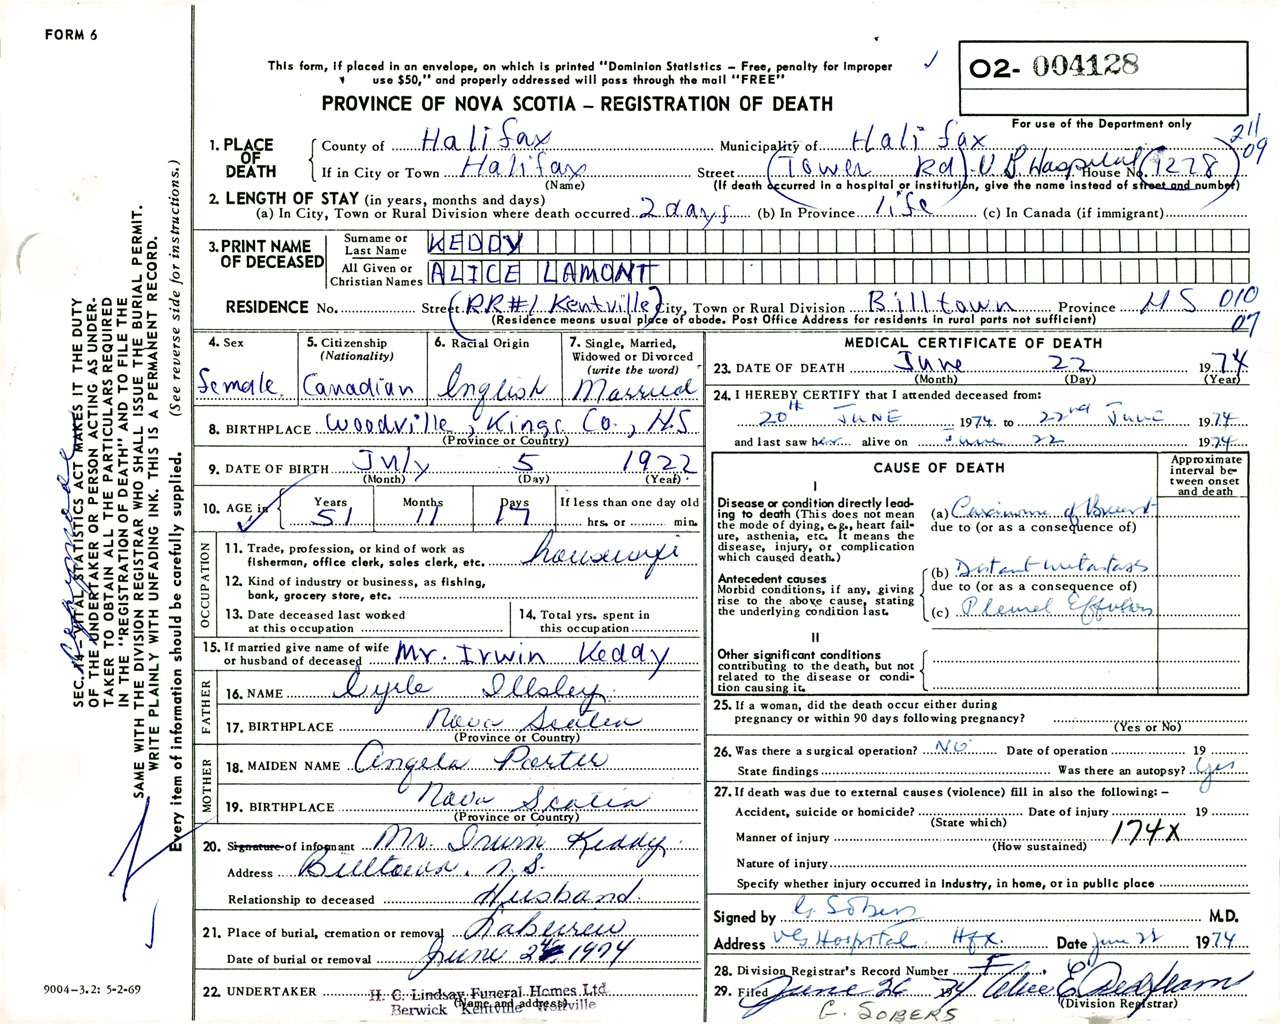 FORM 6
This form, if placed in an envelope, on which is printed "Dominion Statistics – Free, penalty for improper
use $50," and properly addressed will pass through the mail "FREE"
O2- 004128
PROVINCE OF NOVA SCOTIA – REGISTRATION OF DEATH
For use of the Department only
211
09
1. PLACE OF DEATH
County of Halifax Municipality of Halifax
If in City or Town Halifax Street (Tower Rd) V G Hospital House No. (1278)
(Name) (If death occurred in a hospital or institution, give the name instead of street and number)
2. LENGTH OF STAY (in years, months and days)
(a) In City, Town or Rural Division where death occurred 2 days (b) In Province life (c) In Canada (if immigrant)
3. PRINT NAME OF DECEASED
Surname or Last Name KEDDY
All Given or Christian Names ALICE LAMONT
RESIDENCE No. Street (RR#1 Kentville) City, Town or Rural Division Billtown Province NS 010
(Residence means usual place of abode. Post Office Address for residents in rural parts not sufficient) 07
4. Sex
female
5. Citizenship
(Nationality)
Canadian
6. Racial Origin
English
7. Single, Married,
Widowed or Divorced
(write the word)
Married
8. BIRTHPLACE Woodville, Kings Co., NS
(Province or Country)
9. DATE OF BIRTH July 5 1922
(Month) (Day) (Year)
10. AGE is
Years 51
Months 11
Days 17
If less than one day old
hrs. or min.
OCCUPATION
11. Trade, profession, or kind of work as
fisherman, office clerk, sales clerk, etc. housewife
12. Kind of industry or business, as fishing,
bank, grocery store, etc.
13. Date deceased last worked
at this occupation
14. Total yrs. spent in
this occupation
15. If married give name of wife
or husband of deceased Mr. Irwin Keddy
FATHER
16. NAME Cyrle Illsley
17. BIRTHPLACE Nova Scotia
(Province or Country)
MOTHER
18. MAIDEN NAME Angela Porter
19. BIRTHPLACE Nova Scotia
(Province or Country)
20. Signature of informant Mr. Irwin Keddy
Address Billtown, N.S.
Relationship to deceased Husband
21. Place of burial, cremation or removal Lakeview
Date of burial or removal June 24 1974
22. UNDERTAKER H. C. Lindsay Funeral Homes Ltd
(Name and address)
Berwick Kentville Wolfville
MEDICAL CERTIFICATE OF DEATH
23. DATE OF DEATH June 22 1974
(Month) (Day) (Year)
24. I HEREBY CERTIFY that I attended deceased from:
20th JUNE 1974 to 22nd June 1974
and last saw her alive on June 22 1974
CAUSE OF DEATH
Approximate
interval be-
tween onset
and death
I
Disease or condition directly lead-
ing to death (This does not mean
the mode of dying, e.g., heart fail-
ure, asthenia, etc. It means the
disease, injury, or complication
which caused death.)
(a) Carcinoma of Breast
due to (or as a consequence of)
Antecedent causes
Morbid conditions, if any, giving
rise to the above cause, stating
the underlying condition last.
(b) Distant metastases
due to (or as a consequence of)
(c) Pleural Effusion
II
Other significant conditions
contributing to the death, but not
related to the disease or condi-
tion causing it.
25. If a woman, did the death occur either during
pregnancy or within 90 days following pregnancy?
(Yes or No)
26. Was there a surgical operation? NO Date of operation 19
State findings Was there an autopsy? Yes
27. If death was due to external causes (violence) fill in also the following: –
Accident, suicide or homicide? Date of injury 19
(State which)
Manner of injury 174X
(How sustained)
Nature of injury
Specify whether injury occurred in industry, in home, or in public place
Signed by G. Sobers M.D.
Address VG Hospital Hfx. Date June 22 1974
28. Division Registrar's Record Number
29. Filed June 26 1974 Alice E.
(Division Registrar)
G. SOBERS
SEC. 14 – VITAL STATISTICS ACT MAKES IT THE DUTY
OF THE UNDERTAKER OR PERSON ACTING AS UNDER-
TAKER TO OBTAIN ALL THE PARTICULARS REQUIRED
IN THE "REGISTRATION OF DEATH" AND TO FILE THE
SAME WITH THE DIVISION REGISTRAR WHO SHALL ISSUE THE BURIAL PERMIT.
WRITE PLAINLY WITH UNFADING INK. THIS IS A PERMANENT RECORD.
Every item of information should be carefully supplied. (See reverse side for instructions.)
9004–3.2: 5-2-69